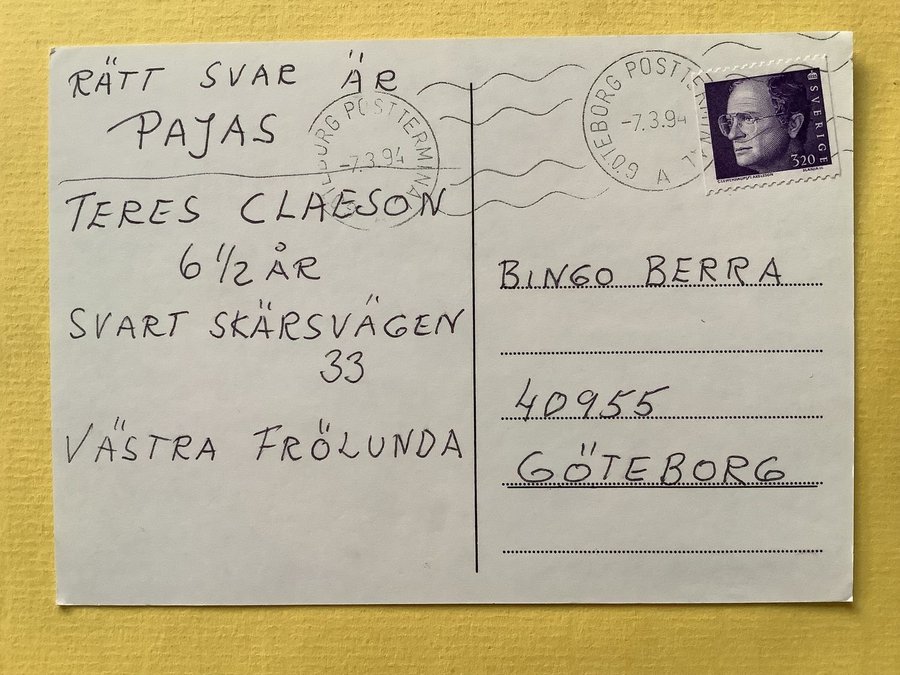 RÄTT SVAR ÄR
PAJAS
TERES CLAESON
6 1/2 ÅR
SVART SKÄRSVÄGEN
33
VÄSTRA FRÖLUNDA
GÖTEBORG POSTTERMINAL
-7.3.94
A
-7.3.94
SVERIGE
320
BINGO BERRA
40955
GÖTEBORG